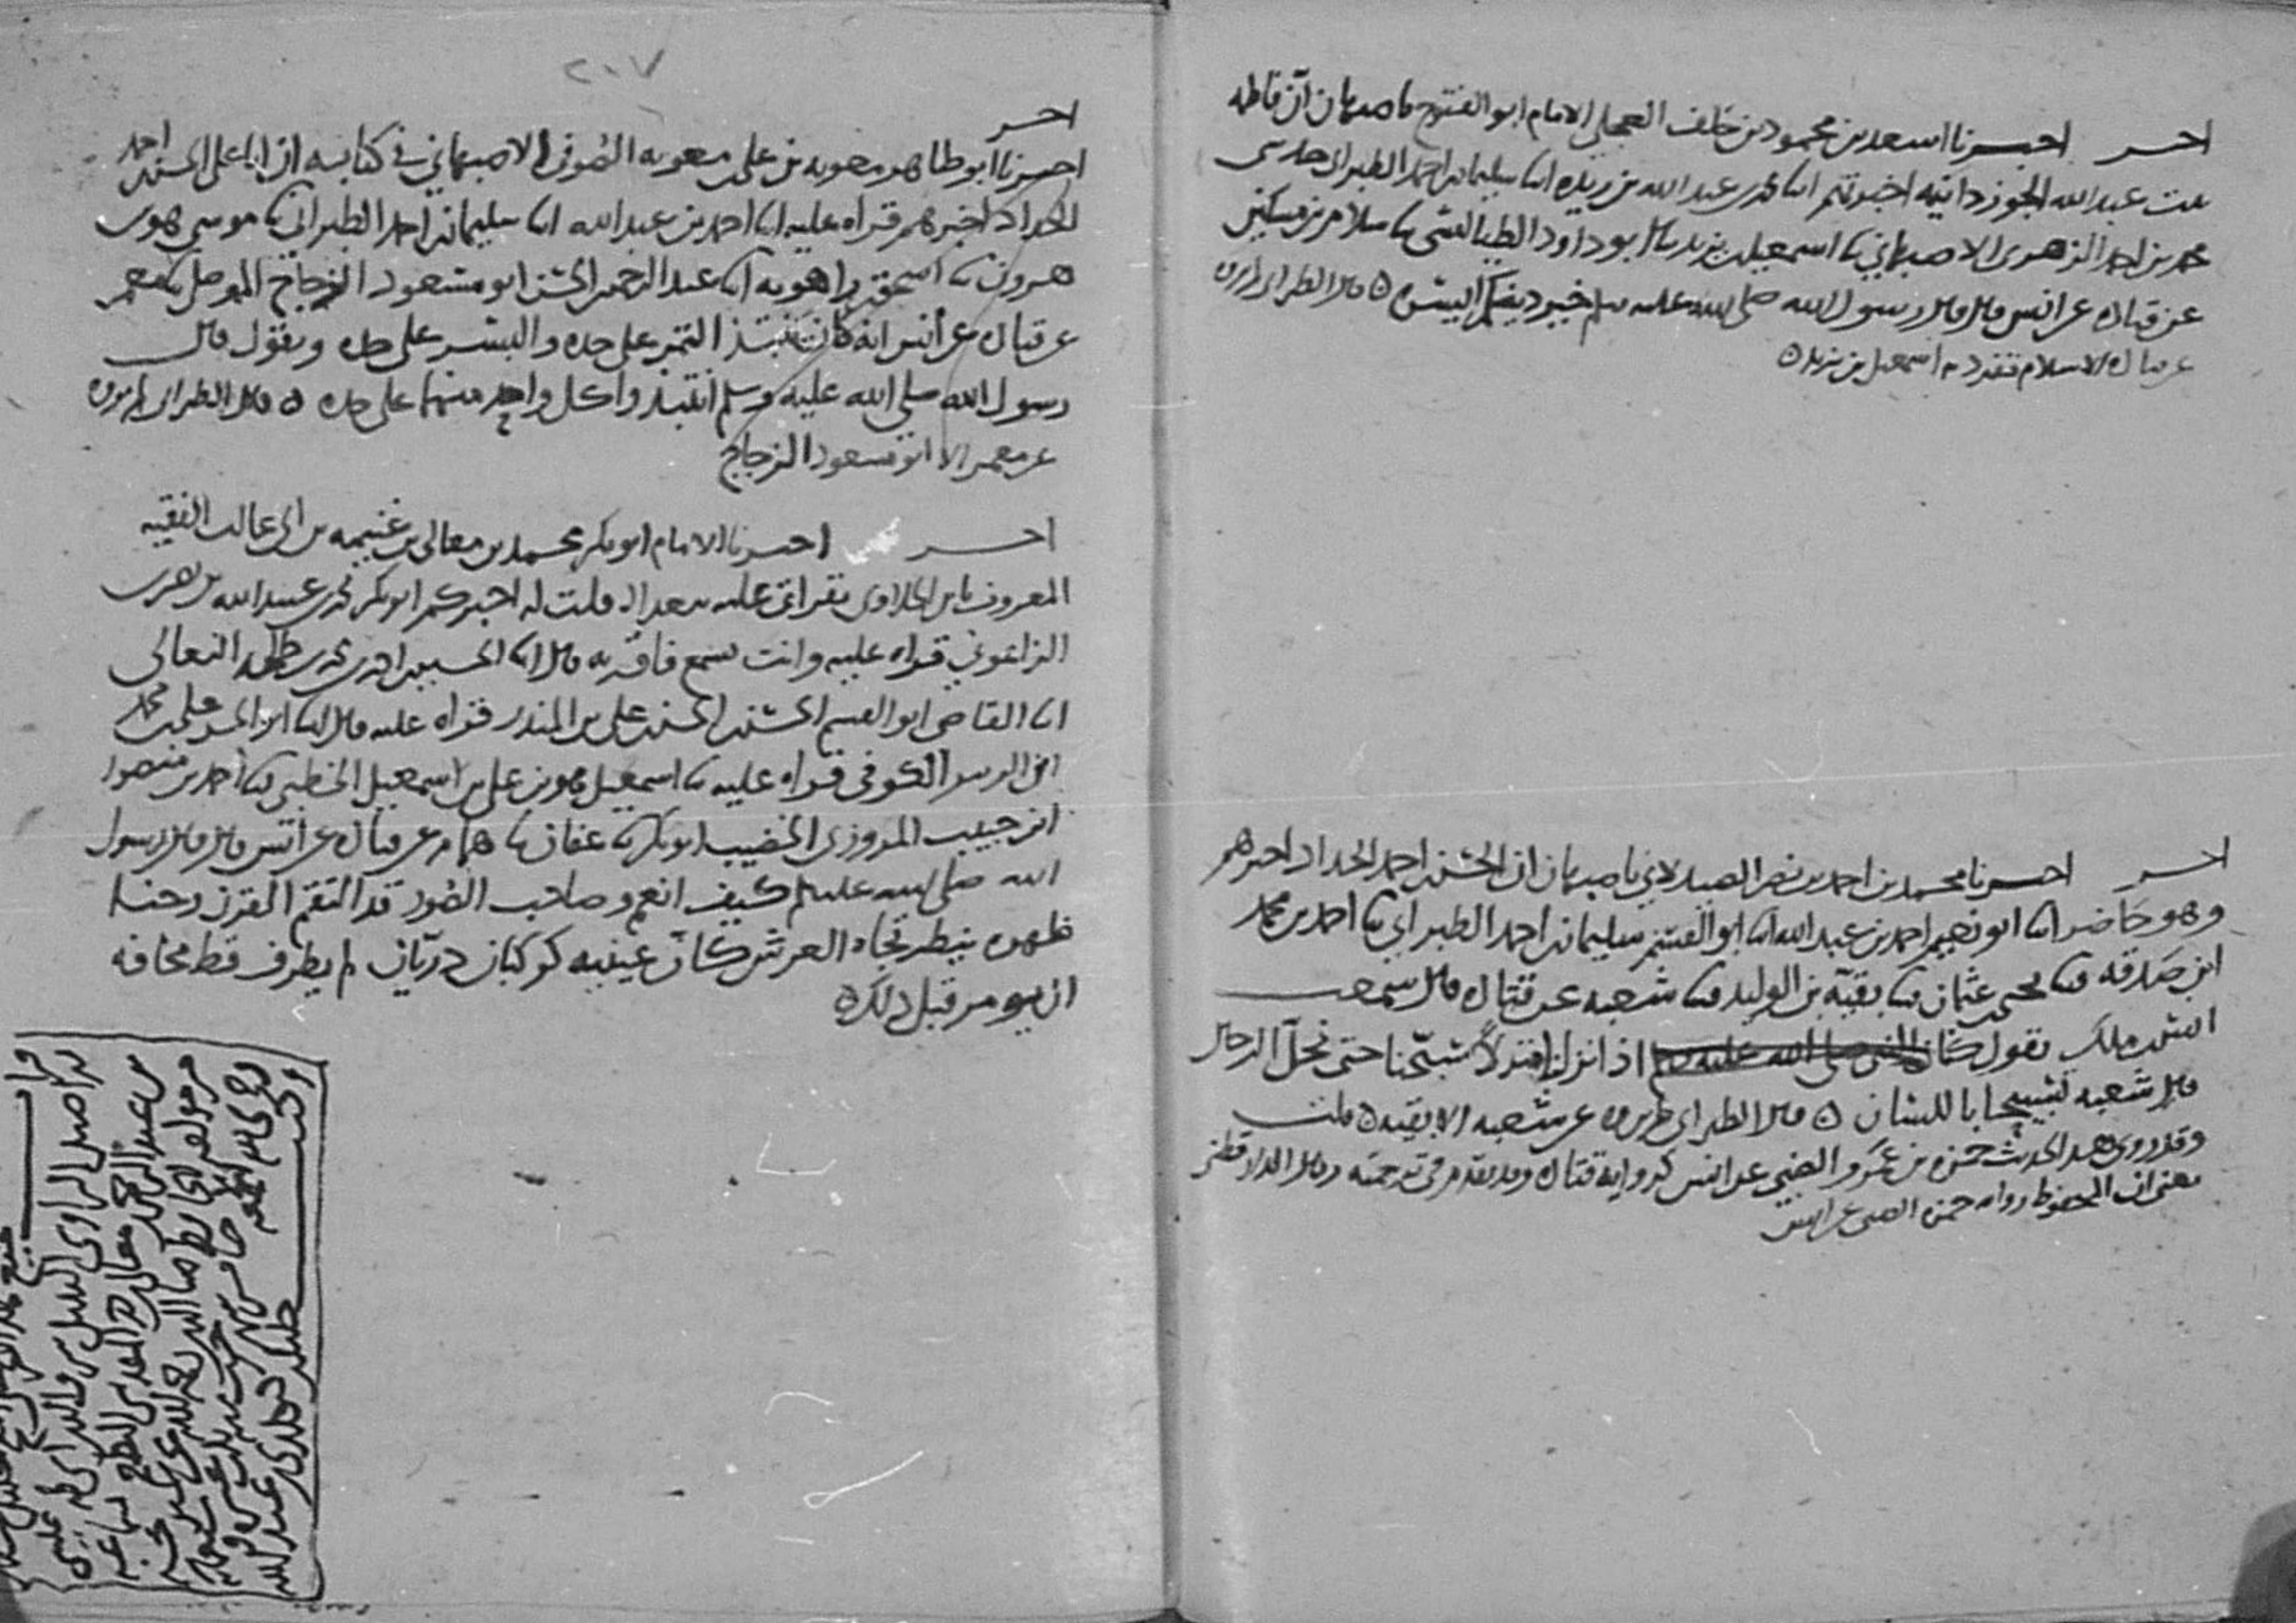 احـــر اخبرنا اسعد بن محمود بن خلف العجلي الامام ابو الفتوح باصبهان ان فاطمه
بنت عبد الله الجوزدانيه اخبرتهم ابنا محمد بن عبد الله بن ريذه ابنا سليمان بن احمد الطبراني حدثني
محمد بن احمد الزهري الاصبهاني ثنا اسمعيل بن يزيد ثنا ابو داود الطيالسي ثنا سلام بن مسكين
عن قتاده عن انس قال قال رسول الله صلى الله عليه وسلم خير دينكم ايسره ه قال الطبراني لم يروه
عن قتاده الا سلام تفرد به اسمعيل بن يزيد ه
احـــر اخبرنا محمد بن احمد بن نصر الصيدلاني باصبهان ان الحسن بن احمد الحداد اخبرهم
وهو حاضر ابنا ابو نعيم احمد بن عبد الله ابنا ابو القسم سليمان بن احمد الطبراني ثنا احمد بن محمد
ابن صدقه ثنا يحيى بن عثمان ثنا بقية بن الوليد ثنا شعبه عن قتاده قال سمعت
انس بن ملك يقول كنا النبي صلى الله عليه وسلم اذا نزلنا منزلاً سبّحنا حتى نحلّ الرحال
قال شعبه تسبيحا باللسان ه قال الطبراني لم يروه عن شعبه الا بقيه ه قلت
وقد روى هذا الحديث حمزه بن عمرو الضبي عن انس كرواية قتاده وقد تقدم في ترجمته وقال الدارقطني
يعني ان المحفوظ رواه حمزه الضبي عن انس
٢٠٧
احـــر
اخبرنا ابو طاهر معويه بن علي بن معويه الصوفي الاصبهاني في كتابه ان ابا علي الحسن بن احمد
الحداد اخبرهم قراه عليه ابنا احمد بن عبد الله ابنا سليمان بن احمد الطبراني ثنا موسى هو بن
هرون ثنا اسحق بن راهويه ابنا عبد الرحمن بن الحسن ابو مسعود الزجاج الموصلي ثنا معمر
عن قتاده عن انس انه كان ينتبذ التمر على حده والبسر على حده ويقول قال
رسول الله صلى الله عليه وسلم انتبذوا كل واحد منهما على حده ه قال الطبراني لم يروه
عن معمر الا ابو مسعود الزجاج
احـــر اخبرنا الامام ابو بكر محمد بن معالي بن غنيمه بن ابي غالب الفقيه
المعروف بابن الحلاوي بقراتي عليه ببغداد قلت له اخبركم ابو بكر محمد بن عبيد الله بن نصر بن
الزاغوني قراه عليه وانت تسمع فاقر به قال ابنا الحسين بن احمد بن محمد بن طلحه النعالي
ابنا القاضي ابو القسم الحسن بن الحسن بن علي بن المنذر قراه عليه قال ابنا ابو الحسن علي بن محمد
ابن الزبير الكوفي قراه عليه ثنا اسمعيل هو بن علي بن اسمعيل الخطبي ثنا احمد بن منصور
ابن حبيب المروزي الخضيب ابو بكر ثنا عفان ثنا همام عن قتاده عن انس قال قال رسول
الله صلى الله عليه وسلم كيف انعم وصاحب الصور قد التقم القرن وحنا
ظهره ينظر تجاه العرش كان عينيه كوكبان دريّان لم يطرف قط مخافه
ان يومر قبل ذلك ه